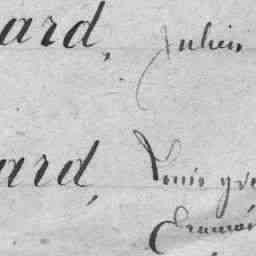 ard, Julien
ard, Louis yve